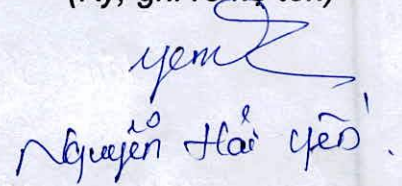 (Ký, ghi rõ họ tên)
Nguyễn Hải Yến.